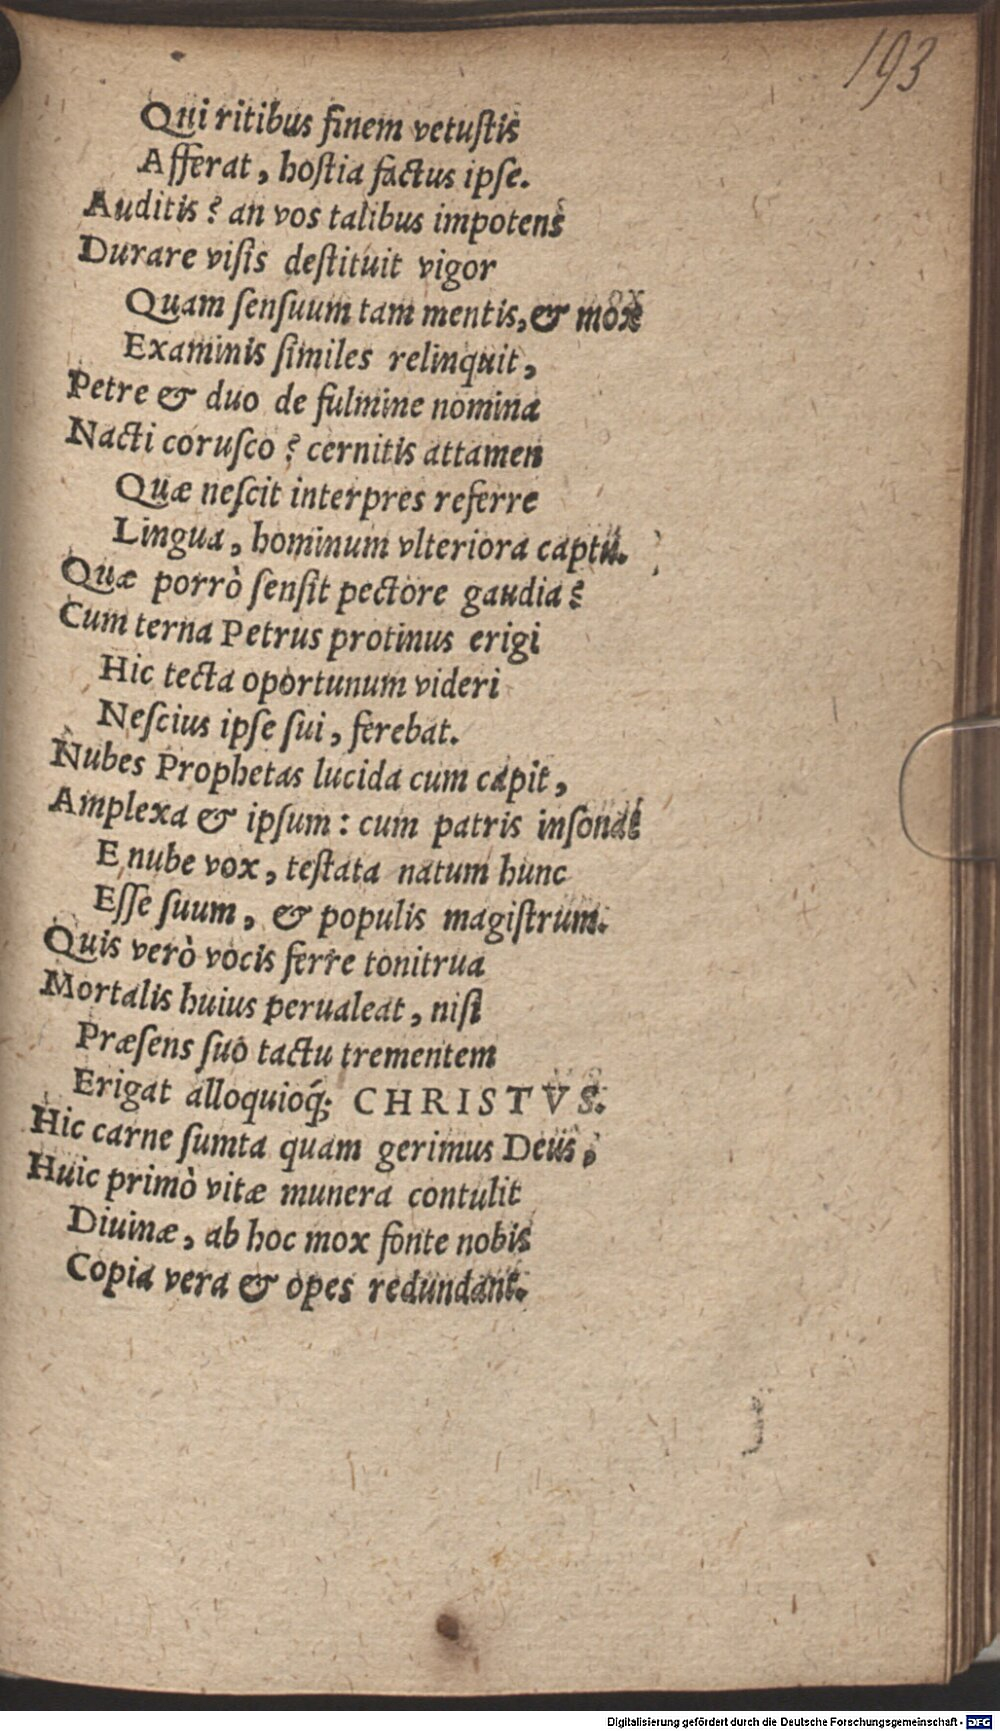 193
Qui ritibus finem vetuſtis
Afferat, hoſtia factus ipſe.
Auditis? an vos talibus impotens
Durare viſis deſtituit vigor
Quam ſenſuum tam mentis, & mox
Examinis ſimiles relinquit,
Petre & duo de fulmine nomina
Nacti coruſco? cernitis attamen
Quæ neſcit interpres referre
Lingua, hominum vlteriora captu.
Quæ porrò ſenſit pectore gaudia?
Cum terna Petrus protinus erigi
Hic tecta oportunum videri
Neſcius ipſe ſui, ferebat.
Nubes Prophetas lucida cum capit,
Amplexa & ipſum: cum patris inſonat
E nube vox, teſtata natum hunc
Eſſe ſuum, & populis magiſtrum.
Quis verò vocis ferre tonitrua
Mortalis huius perualeat, niſi
Præſens ſuo tactu trementem
Erigat alloquioq́; CHRISTVS.
Hic carne ſumta quam gerimus Deus,
Huic primò vitæ munera contulit
Diuinæ, ab hoc mox fonte nobis
Copia vera & opes redundant.
Digitalisierung gefördert durch die Deutsche Forschungsgemeinschaft - DFG